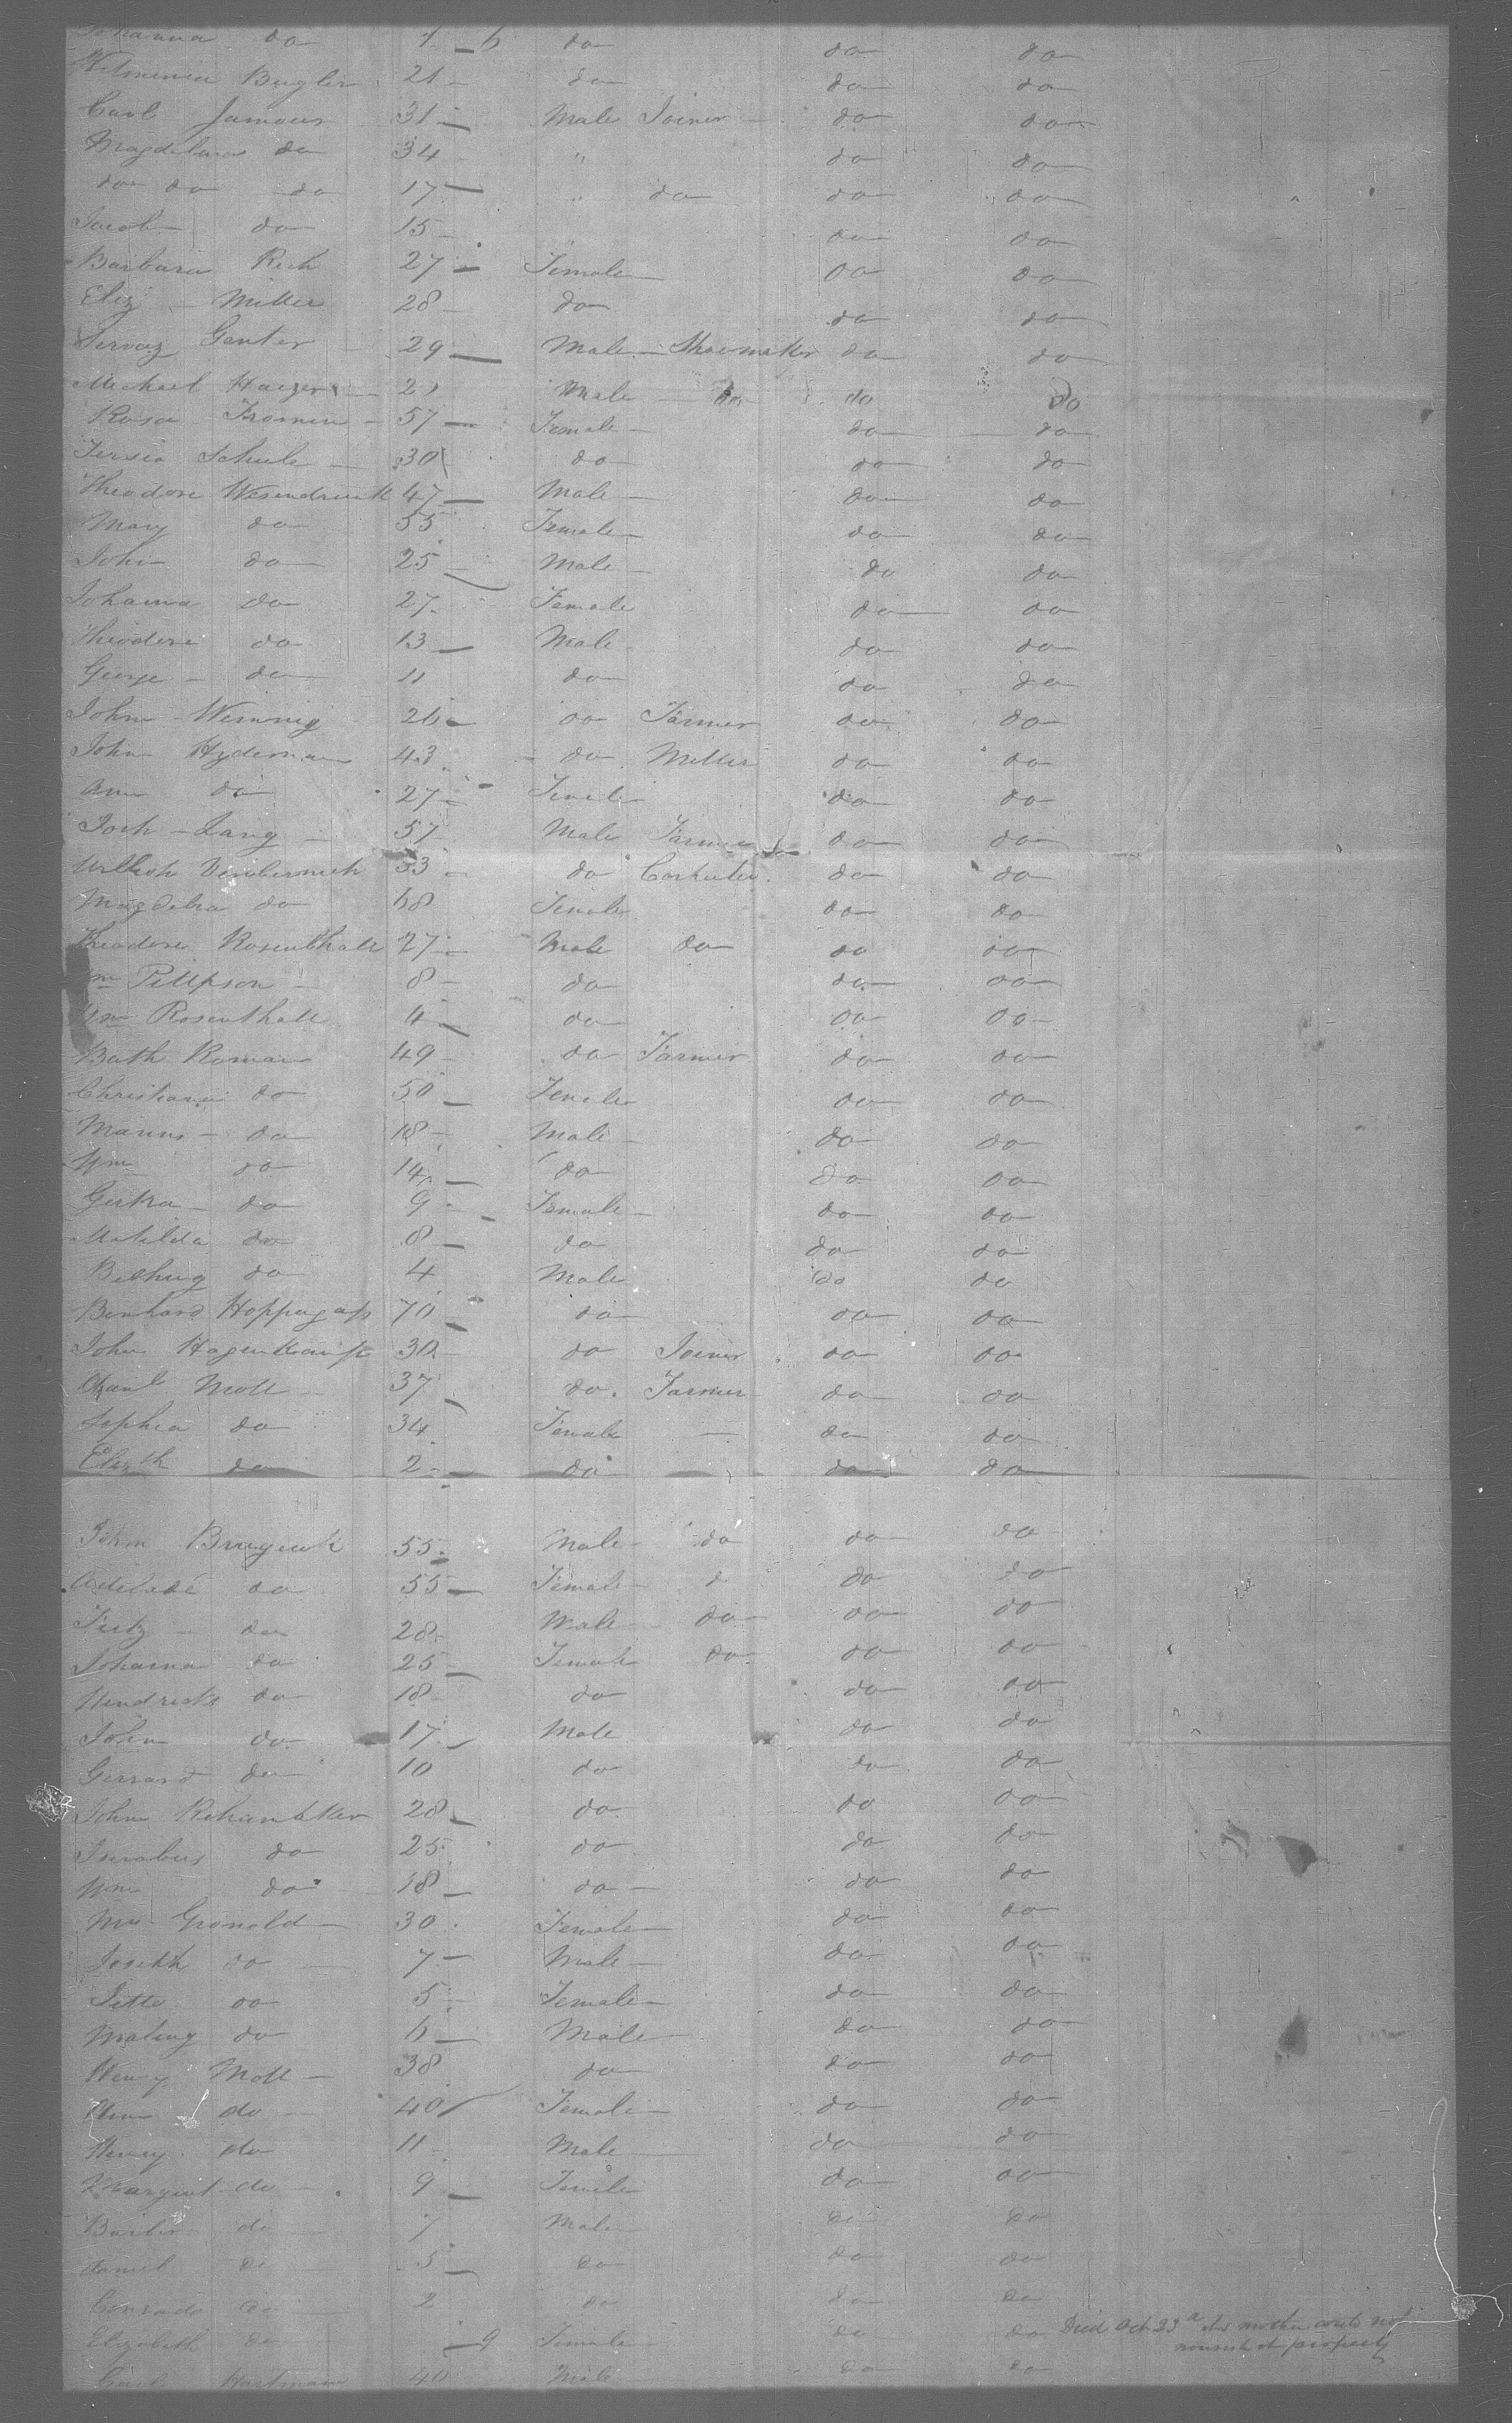 Johanna do 1 - 6 do do do
Wilminia Bugler 21 - do do do
Carl Jamour 31 - Male Joiner do do
Magdelena do 34 - " do do
do do do 17 - " do do do
Jacob do 15 - do do
Barbara Rich 27 - Female do do
Eliz Miller 28 - do do do
Servaz Genter 29 - Male Shoemaker do do
Michael Haezer Male do do do
Rosa 57 - Female do do
Tersia Schule 30 do do do
Theodore Wesendrunk 47 - Male do do
Mary do 55 Female do do
John do 25 - Male do do
Johanna do 27 - Female do do
Theodore do 13 - Male do do
George - do 11 do do do
John - Wenning 26 - do Farmer do do
John Hydeman 43 - do Miller do do
Ann do 27 - Female do do
Joch - Lang 57 Male Farmer do do
53 - do Carpenter do do
Magdelna do 68 Female do do
Theodore Rosenthall 27 - Male do do do
Wm Pittpson - 8 - do do do
Wm Rosenthall 4 - do do do
Bath Roman 49 - do Farmer do do
Christiana do 50 - Female do do
Manns - do 18 - Male do do
Wm do 14 - do do do
Gertra - do 9 - Female do do
Matilda do 8 - do do do
do 4 Male do do
Benhard Hoppengass 70 - do do do
John Hagenkamp 30 - do Joiner do do
Carl Moll 37 - do Farmer do do
Sophia do 34 Female - do do
Elizth do 2 - do do do
John Brugink 55 - Male do do do
Adelade do 55 - Female do do
Fritz - do 28 - Male do do do
Johanna do 25 - Female do do do
Hendricks do 18 - do do do
John do 17 - Male do do
Gerrard do 10 do do do
John 28 - do do do
do 25 - do do do
Wm do 18 - do do do
Mrs Gronold 30 - Female do do
Joseph do 7 - Male do do
Jette do 5 - Female do do
do 6 - Male do do
Henry Moll - 38 do do do
do 40 Female do do
Henry do 11 Male do do
Margaret do 9 - Female do do
do 7 Male do do
Daniel do 5 - do do do
Conrade do 2 do do do
Elizabeth do - 9 Female do do Died Oct 23d its mother could not
nourish it properly
Carl Hartmann 40 Male do do